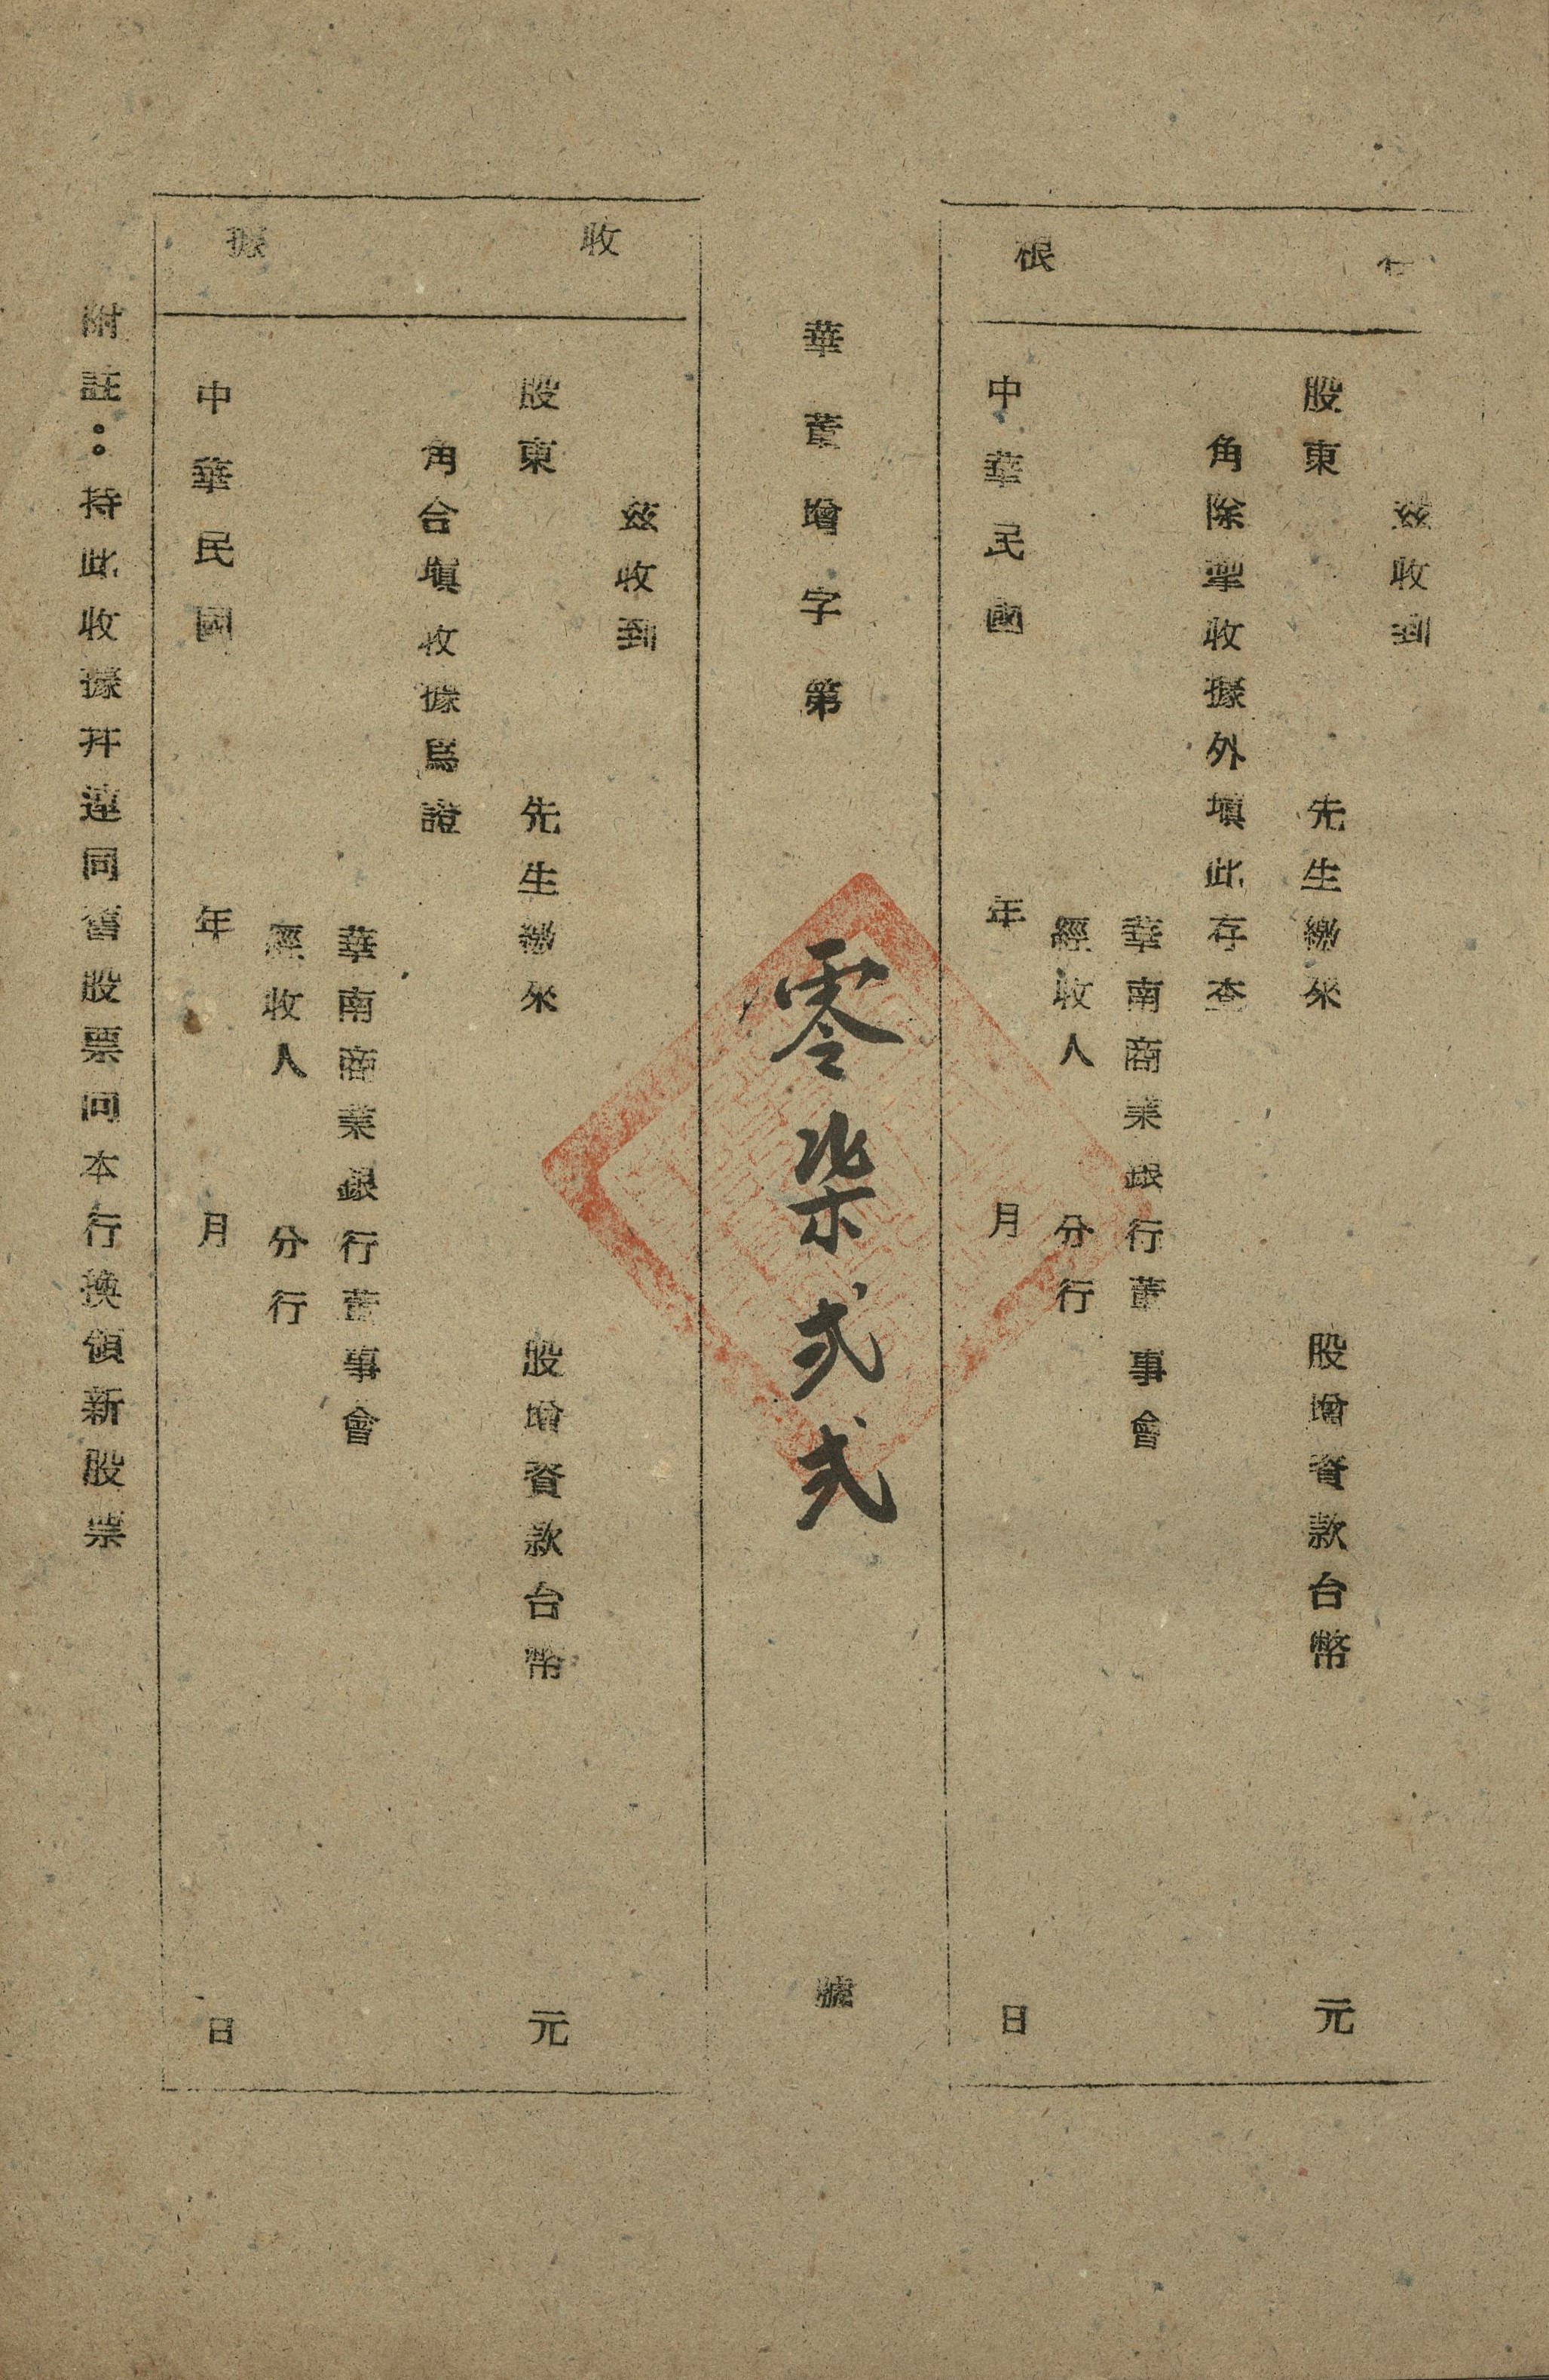 存根
茲收到
股東　先生繳來　股增資款台幣　元
角除掣收據外塡此存查
華南商業銀行董事會
經收人　分行
中華民國　年　月　日
華董增字第零柒貳貳號
收據
茲收到
股東　先生繳來　股增資款台幣　元
角合塡收據爲證
華南商業銀行董事會
經收人　分行
中華民國　年　月　日
附註：持此收據幷連同舊股票向本行換領新股票